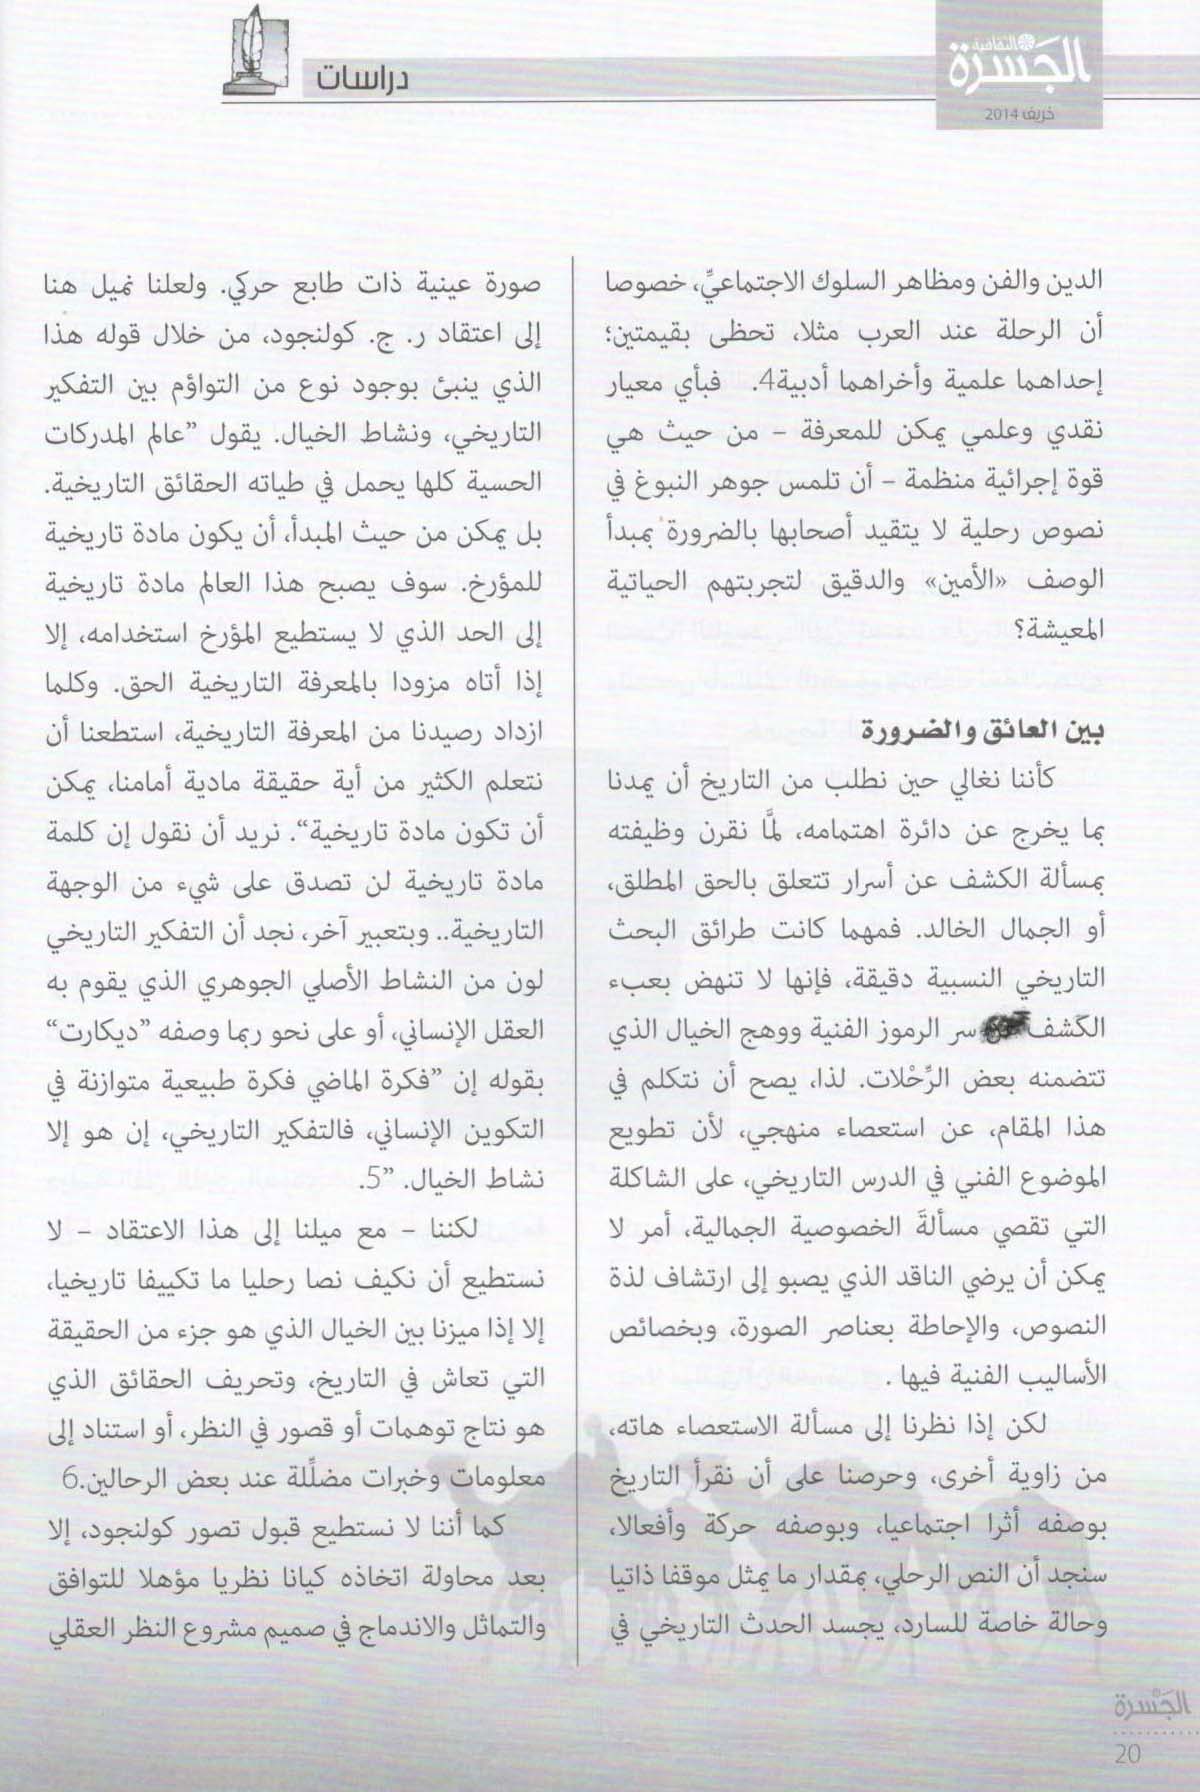 الجَسرة الثقافية
خريف 2014
دراسات
الدين والفن ومظاهر السلوك الاجتماعيِّ، خصوصا
أن الرحلة عند العرب مثلا، تحظى بقيمتين؛
إحداهما علمية وأخراهما أدبية4. فبأي معيار
نقدي وعلمي يمكن للمعرفة - من حيث هي
قوة إجرائية منظمة - أن تلمس جوهر النبوغ في
نصوص رحلية لا يتقيد أصحابها بالضرورة بمبدأ
الوصف «الأمين» والدقيق لتجربتهم الحياتية
المعيشة؟
بين العائق والضرورة
كأننا نغالي حين نطلب من التاريخ أن يمدنا
بما يخرج عن دائرة اهتمامه، لمَّا نقرن وظيفته
بمسألة الكشف عن أسرار تتعلق بالحق المطلق،
أو الجمال الخالد. فمهما كانت طرائق البحث
التاريخي النسبية دقيقة، فإنها لا تنهض بعبء
الكشف سر الرموز الفنية ووهج الخيال الذي
تتضمنه بعض الرِّحْلات. لذا، يصح أن نتكلم في
هذا المقام، عن استعصاء منهجي، لأن تطويع
الموضوع الفني في الدرس التاريخي، على الشاكلة
التي تقصي مسألةَ الخصوصية الجمالية، أمر لا
يمكن أن يرضي الناقد الذي يصبو إلى ارتشاف لذة
النصوص، والإحاطة بعناصر الصورة، وبخصائص
الأساليب الفنية فيها .
لكن إذا نظرنا إلى مسألة الاستعصاء هاته،
من زاوية أخرى، وحرصنا على أن نقرأ التاريخ
بوصفه أثرا اجتماعيا، وبوصفه حركة وأفعالا،
سنجد أن النص الرحلي، بمقدار ما يمثل موقفا ذاتيا
وحالة خاصة للسارد، يجسد الحدث التاريخي في
صورة عينية ذات طابع حركي. ولعلنا نميل هنا
إلى اعتقاد ر. ج. كولنجود، من خلال قوله هذا
الذي ينبئ بوجود نوع من التواؤم بين التفكير
التاريخي، ونشاط الخيال. يقول ”عالم المدركات
الحسية كلها يحمل في طياته الحقائق التاريخية.
بل يمكن من حيث المبدأ، أن يكون مادة تاريخية
للمؤرخ. سوف يصبح هذا العالم مادة تاريخية
إلى الحد الذي لا يستطيع المؤرخ استخدامه، إلا
إذا أتاه مزودا بالمعرفة التاريخية الحق. وكلما
ازداد رصيدنا من المعرفة التاريخية، استطعنا أن
نتعلم الكثير من أية حقيقة مادية أمامنا، يمكن
أن تكون مادة تاريخية“. نريد أن نقول إن كلمة
مادة تاريخية لن تصدق على شيء من الوجهة
التاريخية.. وبتعبير آخر، نجد أن التفكير التاريخي
لون من النشاط الأصلي الجوهري الذي يقوم به
العقل الإنساني، أو على نحو ربما وصفه ”ديكارت“
بقوله إن ”فكرة الماضي فكرة طبيعية متوازنة في
التكوين الإنساني، فالتفكير التاريخي، إن هو إلا
نشاط الخيال. ”5.
لكننا - مع ميلنا إلى هذا الاعتقاد - لا
نستطيع أن نكيف نصا رحليا ما تكييفا تاريخيا،
إلا إذا ميزنا بين الخيال الذي هو جزء من الحقيقة
التي تعاش في التاريخ، وتحريف الحقائق الذي
هو نتاج توهمات أو قصور في النظر، أو استناد إلى
معلومات وخبرات مضلِّلة عند بعض الرحالين.6
كما أننا لا نستطيع قبول تصور كولنجود، إلا
بعد محاولة اتخاذه كيانا نظريا مؤهلا للتوافق
والتماثل والاندماج في صميم مشروع النظر العقلي
الجَسْرة
20